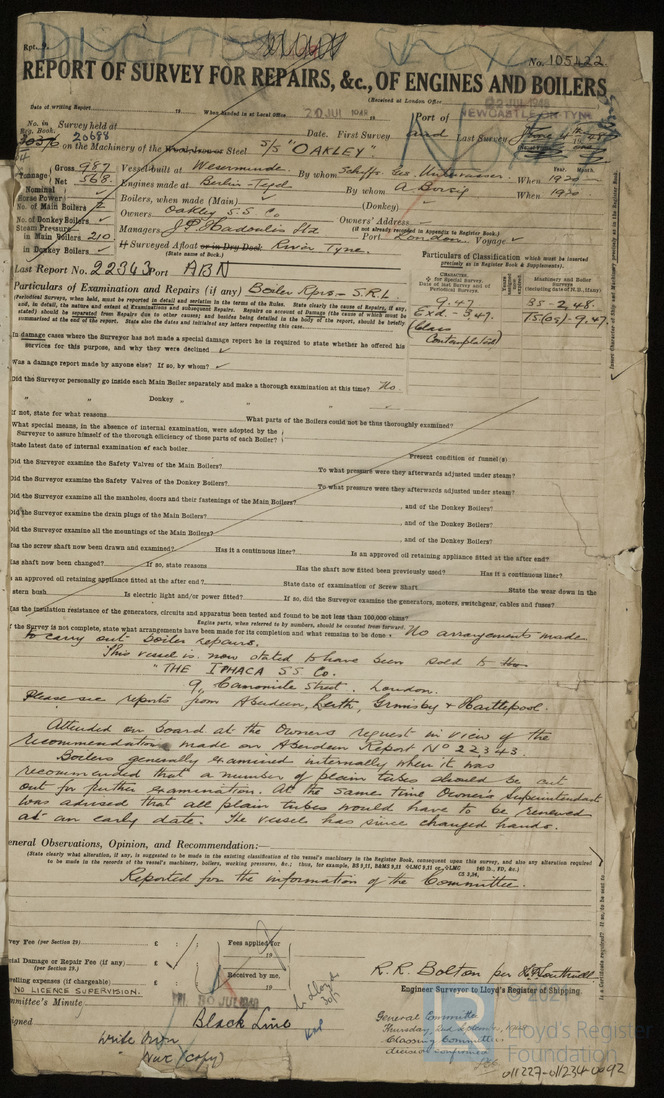 Rpt. 9.
No. 105422
REPORT OF SURVEY FOR REPAIRS, &c., OF ENGINES AND BOILERS
(Received at London Office
Date of writing Report 19 When handed in at Local Office 20 JUL 1948 19 Port of NEWCASTLE-ON-TYNE
No. in Reg. Book. Survey held at Date. First Survey and Last Survey
20688 on the Machinery of the Wood, Iron or Steel S/S "OAKLEY"
Tonnage Gross 987 Vessel built at Wesermunde By whom When 1920
Net 568 Engines made at Berlin-Tegel By whom A Borsig When 1920
Nominal Horse Power Boilers, when made (Main) (Donkey)
No. of Main Boilers 2 Owners Oakley S.S. Co Owners' Address
No. of Donkey Boilers (if not already recorded in Appendix to Register Book.)
Steam Pressure in Main Boilers 210 Managers J.P. Hadoulis Ltd Port London Voyage
in Donkey Boilers If Surveyed Afloat or in Dry Dock River Tyne.
(State name of Dock.)
Last Report No. 22343 Port ABN
Particulars of Classification which must be inserted precisely as in Register Book & Supplements).
Particulars of Examination and Repairs (if any) Boiler Rprs - S.R.L.
9.47 BS - 2.48.
Exd - 3.47. TS(OG) - 9.47.
(Class Contemplated)
In damage cases where the Surveyor has not made a special damage report he is required to state whether he offered his
services for this purpose, and why they were declined
Was a damage report made by anyone else? If so, by whom?
Did the Surveyor personally go inside each Main Boiler separately and make a thorough examination at this time? No.
" " Donkey " " "
If not, state for what reasons What parts of the Boilers could not be thus thoroughly examined?
What special means, in the absence of internal examination, were adopted by the
Surveyor to assure himself of the thorough efficiency of those parts of each Boiler?
State latest date of internal examination of each boiler Present condition of funnel(s)
Did the Surveyor examine the Safety Valves of the Main Boilers? To what pressure were they afterwards adjusted under steam?
Did the Surveyor examine the Safety Valves of the Donkey Boilers? To what pressure were they afterwards adjusted under steam?
Did the Surveyor examine all the manholes, doors and their fastenings of the Main Boilers? , and of the Donkey Boilers?
Did the Surveyor examine the drain plugs of the Main Boilers? , and of the Donkey Boilers?
Did the Surveyor examine all the mountings of the Main Boilers? , and of the Donkey Boilers?
Has the screw shaft now been drawn and examined? Has it a continuous liner? Is an approved oil retaining appliance fitted at the after end?
Has shaft now been changed? If so, state reasons Has the shaft now fitted been previously used? Has it a continuous liner?
Is an approved oil retaining appliance fitted at the after end? State date of examination of Screw Shaft State the wear down in the
stern bush Is electric light and/or power fitted? If so, did the Surveyor examine the generators, motors, switchgear, cables and fuses?
Has the insulation resistance of the generators, circuits and apparatus been tested and found to be not less than 100,000 ohms?
Engine parts, when referred to by numbers, should be counted from forward.
If the Survey is not complete, state what arrangements have been made for its completion and what remains to be done. No arrangements made
to carry out boiler repairs.
This vessel is now stated to have been sold to the
"THE ITHACA SS Co.
9, Camomile Street. London.
Please see reports from Aberdeen, Leith, Grimsby & Hartlepool.
Attended on board at the Owners request in view of the
recommendation made on Aberdeen Report No 22343.
Boilers generally examined internally when it was
recommended that a number of plain tubes should be cut
out for further examination. At the same time Owner's Superintendent
was advised that all plain tubes would have to be renewed
at an early date. The vessel has since changed hands.
General Observations, Opinion, and Recommendation:—
(State clearly what alteration, if any, is suggested to be made in the existing classification of the vessel's machinery in the Register Book, consequent upon this survey, and also any alteration required
to be made in the records of the vessel's machinery, boilers, working pressures, &c.; thus, for example, BS 9,11, B&MS 9,11 or
Reported for the information of the Committee.
Survey Fee (per Section 29) £ : : Fees applied for
Special Damage or Repair Fee (if any) (per Section 29.) £ : : 19
Travelling expenses (if chargeable) £ : : Received by me, 19
NO LICENCE SUPERVISION.
R. R. Bolton per
Engineer Surveyor to Lloyd's Register of Shipping.
Committee's Minute FRI. 30 JUL 1948
Assigned Black Line
Write Own
General Committee
Thursday, 2nd September, 1948
Classing Committee's
decision confirmed
© 2021
Lloyd's Register
Foundation
011227-011234-0092